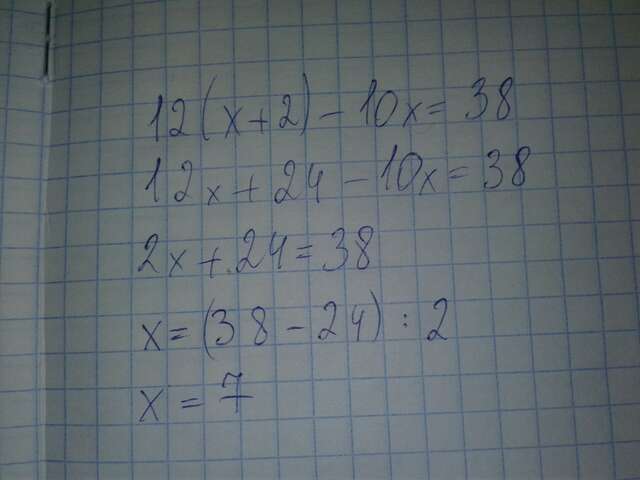 12(x+2)-10x=38
12x+24-10x=38
2x+24=38
x=(38-24):2
x=7